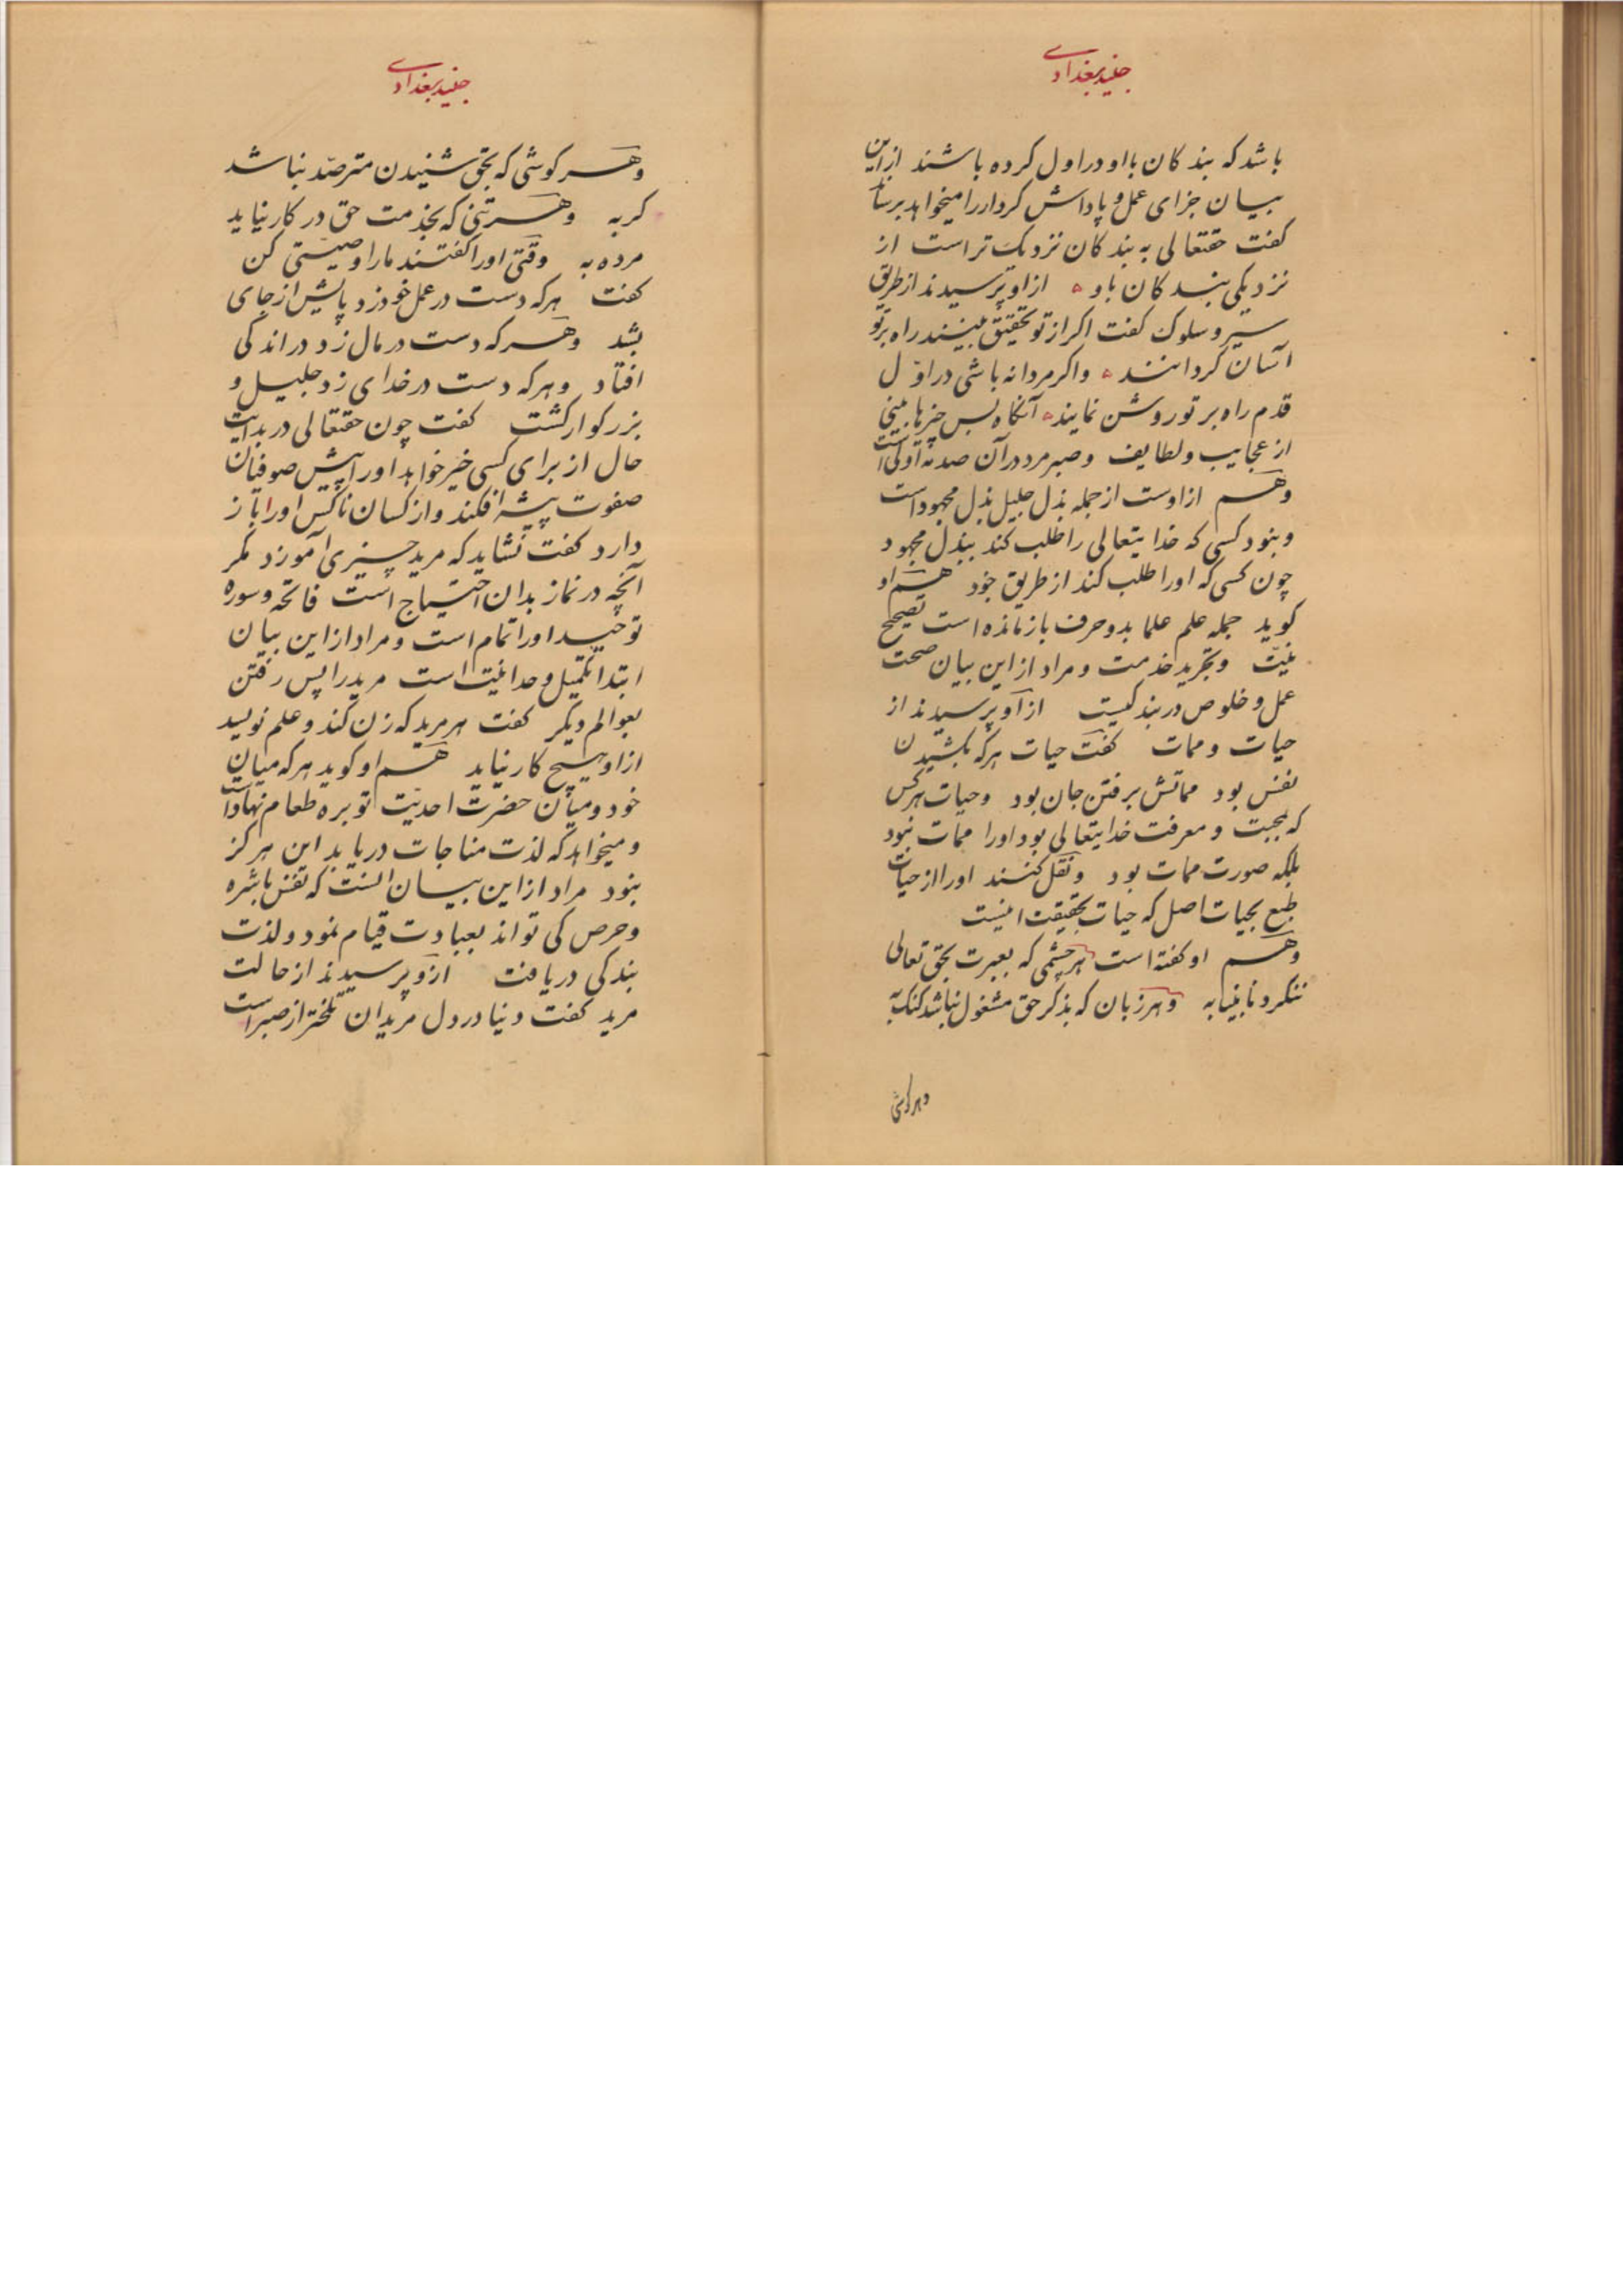 جنید بغدادی
باشد که بندکان با او در اول کرده باشند از این
بیان جزای عمل و پاداش کردار را میخواهد برساند
کفت حقتعالی به بندکان نزدیک تر است از
نزدیکی بندکان باو از او پرسیدند از طریق
سیر و سلوک کفت اکر از تو تحقیق بینند راه بر تو
آسان کردانند واکر مردانه باشی در اوّل
قدم راه بر تو روشن نمایند آنکاه بس چیزها بینی
از عجایب و لطایف وصبر مرد در آن صدمه اولی است
وهم از اوست از جمله بذل جلیل بذل مجهود است
ونبود کسی که خدایتعالی را طلب کند ببذل مجهود
چون کسی که او را طلب کند از طریق جود هم او
کوید جمله علم علما بدو حرف باز مانده است تصحیح
نیّت وتجرید خدمت ومراد از این بیان صحت
عمل و خلوص در بندکیست از او پرسیدند از
حیات وممات کفت حیات هرکه بکشیدن
نفس بود مماتش برفتن جان بود وحیات هرکس
که بمحبت و معرفت خدایتعالی بود او را ممات نبود
بلکه صورت ممات بود ونقل کنند او را از حیات
طبع بحیات اصل که حیات بحقیقت اینست
وهم او کفته است هر چشمی که بعبرت بحق تعالی
ننکرد نابینا به وهر زبان که بذکر حق مشغول نباشد کنک به
وهر کوشی
جنید بغدادی
وهر کوشی که بحق شنیدن مترصّد نباشد
کر به وهر تنی که بخدمت حق در کار نیاید
مرده به وقتی او را کفتند ما را وصیّتی کن
کفت هرکه دست در عمل خود زد پایش از جای
بشد وهر که دست در مال زد در اندکی
افتاد وهرکه دست در خدای زد جلیل و
بزرکوار کشت کفت چون حقتعالی در بدایت
حال از برای کسی خیر خواهد او را پیش صوفیان
صفوت پیشه افکند واز کسان ناکس او را باز
دارد کفت نشاید که مرید چیزی آموزد مکر
آنچه در نماز بدان احتیاج است فاتحه وسوره
توحید او را تمام است ومراد از این بیان
ابتدا تکمیل وحدانیت است مرید را پس رفتن
بعوالم دیکر کفت هر مرید که زن کند و علم نویسد
از او هیچ کار نیاید هم او کوید هرکه میان
خود ومیان حضرت احدیّت توبره طعام نهاده است
ومیخواهد که لذت مناجات دریابد این هرکز
نبود مراد از این بیان انست که نفس با شره
وحرص کی تواند بعبادت قیام نمود ولذت
بندکی دریافت از او پرسیدند از حالت
مرید کفت دنیا در دل مریدان تلختر از صبر است